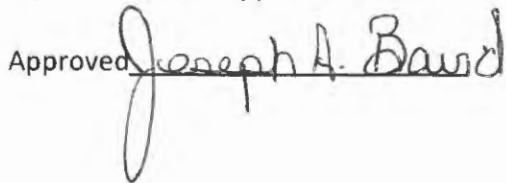 Approved Joseph A. Baird